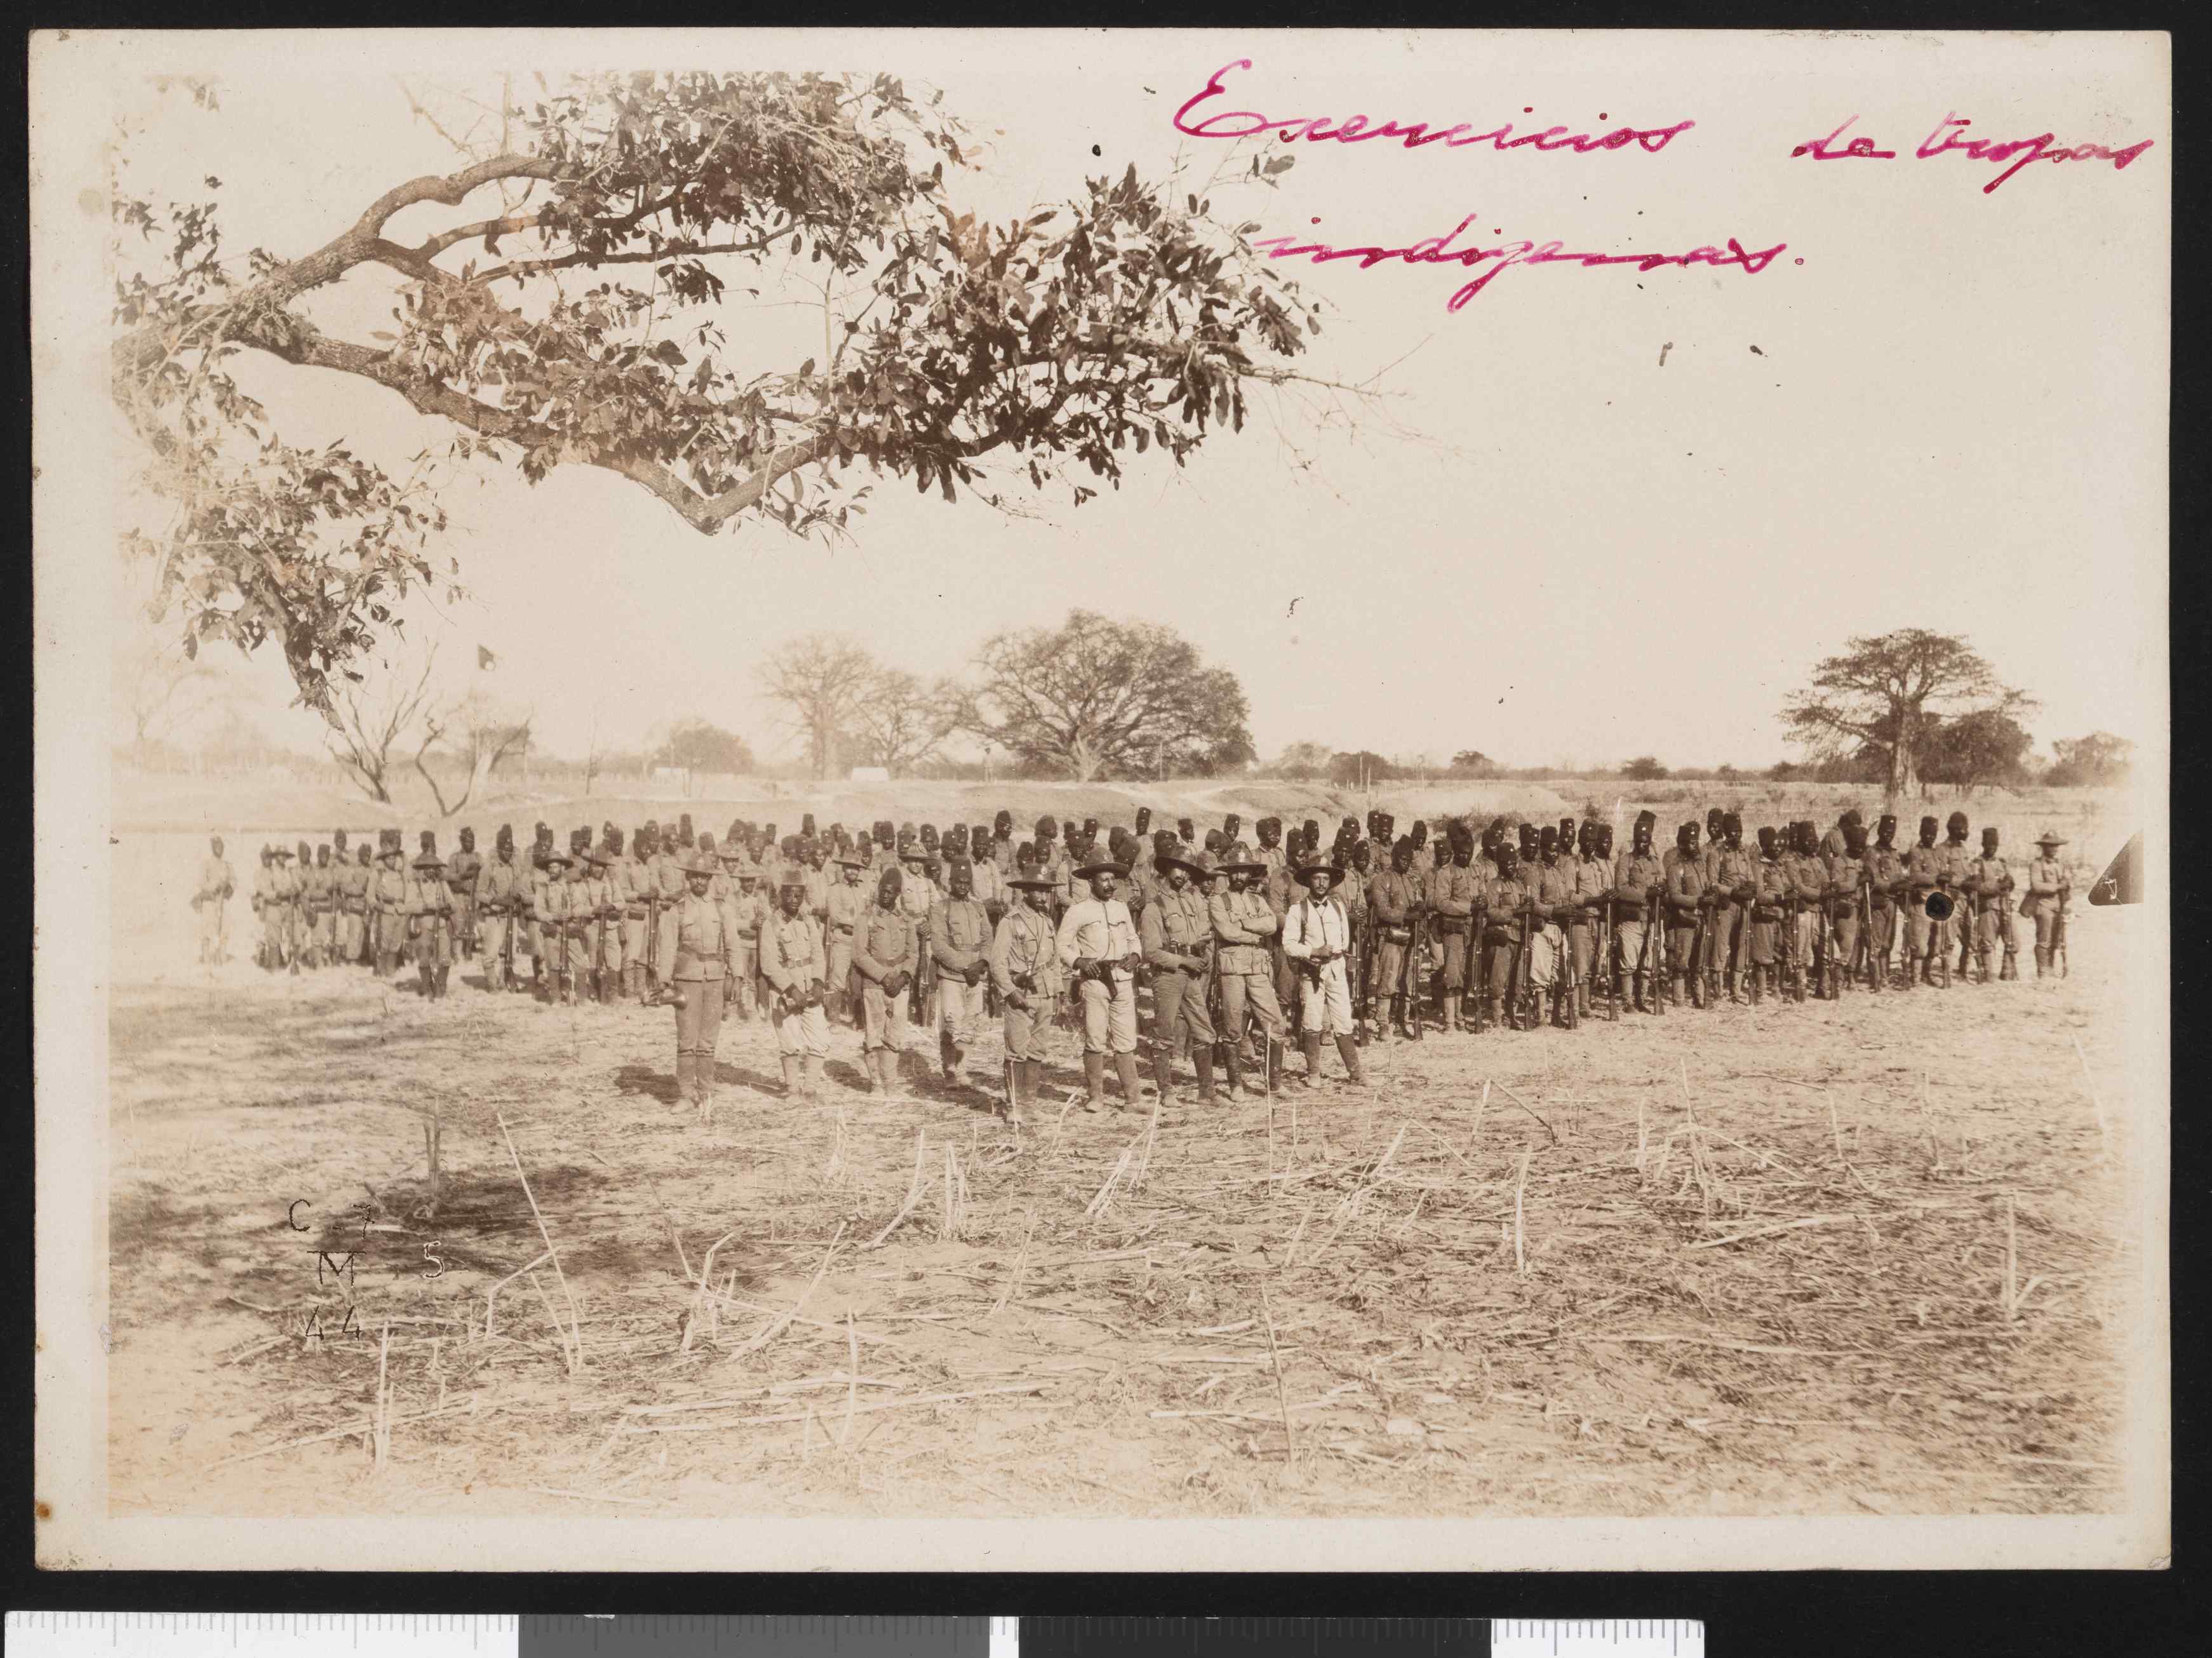 Exercicios de tropas
indigenas.
C 7
M 5
44